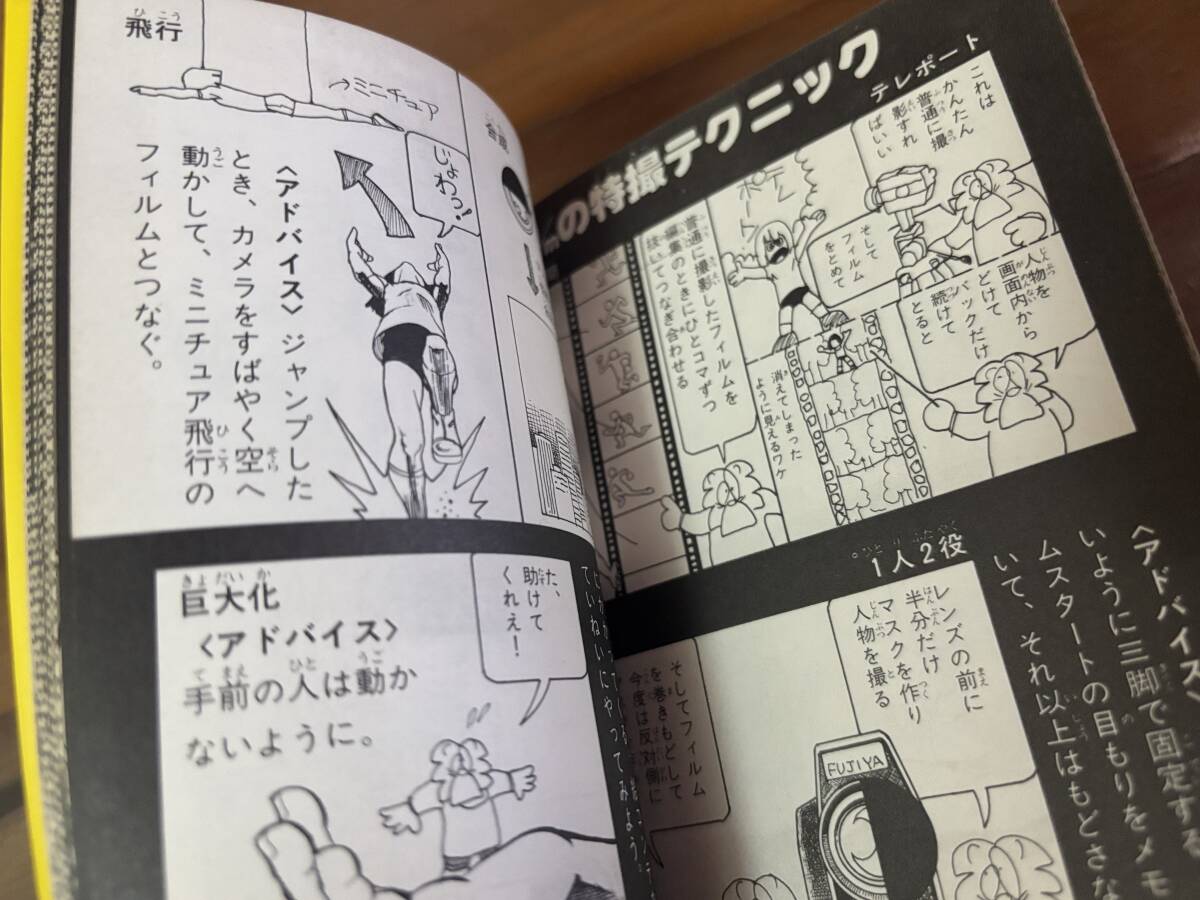 飛行
ミニチュア
じょわっ!
〈アドバイス〉ジャンプした
とき、カメラをすばやく空へ
動かして、ミニチュア飛行の
フィルムとつなぐ。
巨大化
〈アドバイス〉
手前の人は動か
ないように。
た、
助けて
くれえ!
の特撮テクニック
テレポート
これは
かんたん
普通に撮
影すれ
ばいい
そして
フィルム
をとめて
人物を
画面内から
どけて
バックだけ
続けて
とると
消えてしまった
ように見えるワケ
普通に撮影したフィルムを
編集のときにひとコマずつ
抜いてつなぎ合わせる
1人2役
レンズの前に
半分だけ
マスクを作り
人物を撮る
そしてフィルム
を巻きもどして
今度は反対側に
FUJIYA
〈アドバイス〉
いように三脚で固定する
ムスタートの目もりをメモ
いて、それ以上はもどさな
ていねいにやってみよう